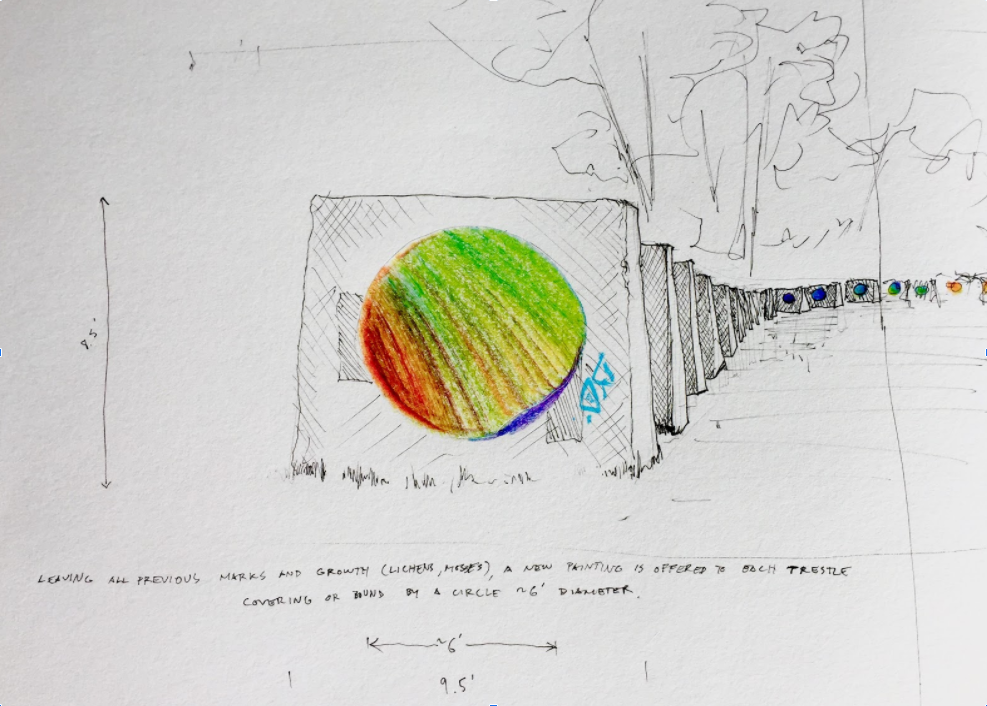 8.5'
LEAVING ALL PREVIOUS MARKS AND GROWTH (LICHENS, MOSSES), A NEW PAINTING IS OFFERED TO EACH TRESTLE
COVERING OR BOUND BY A CIRCLE ~6' DIAMETER.
~6'
9.5'